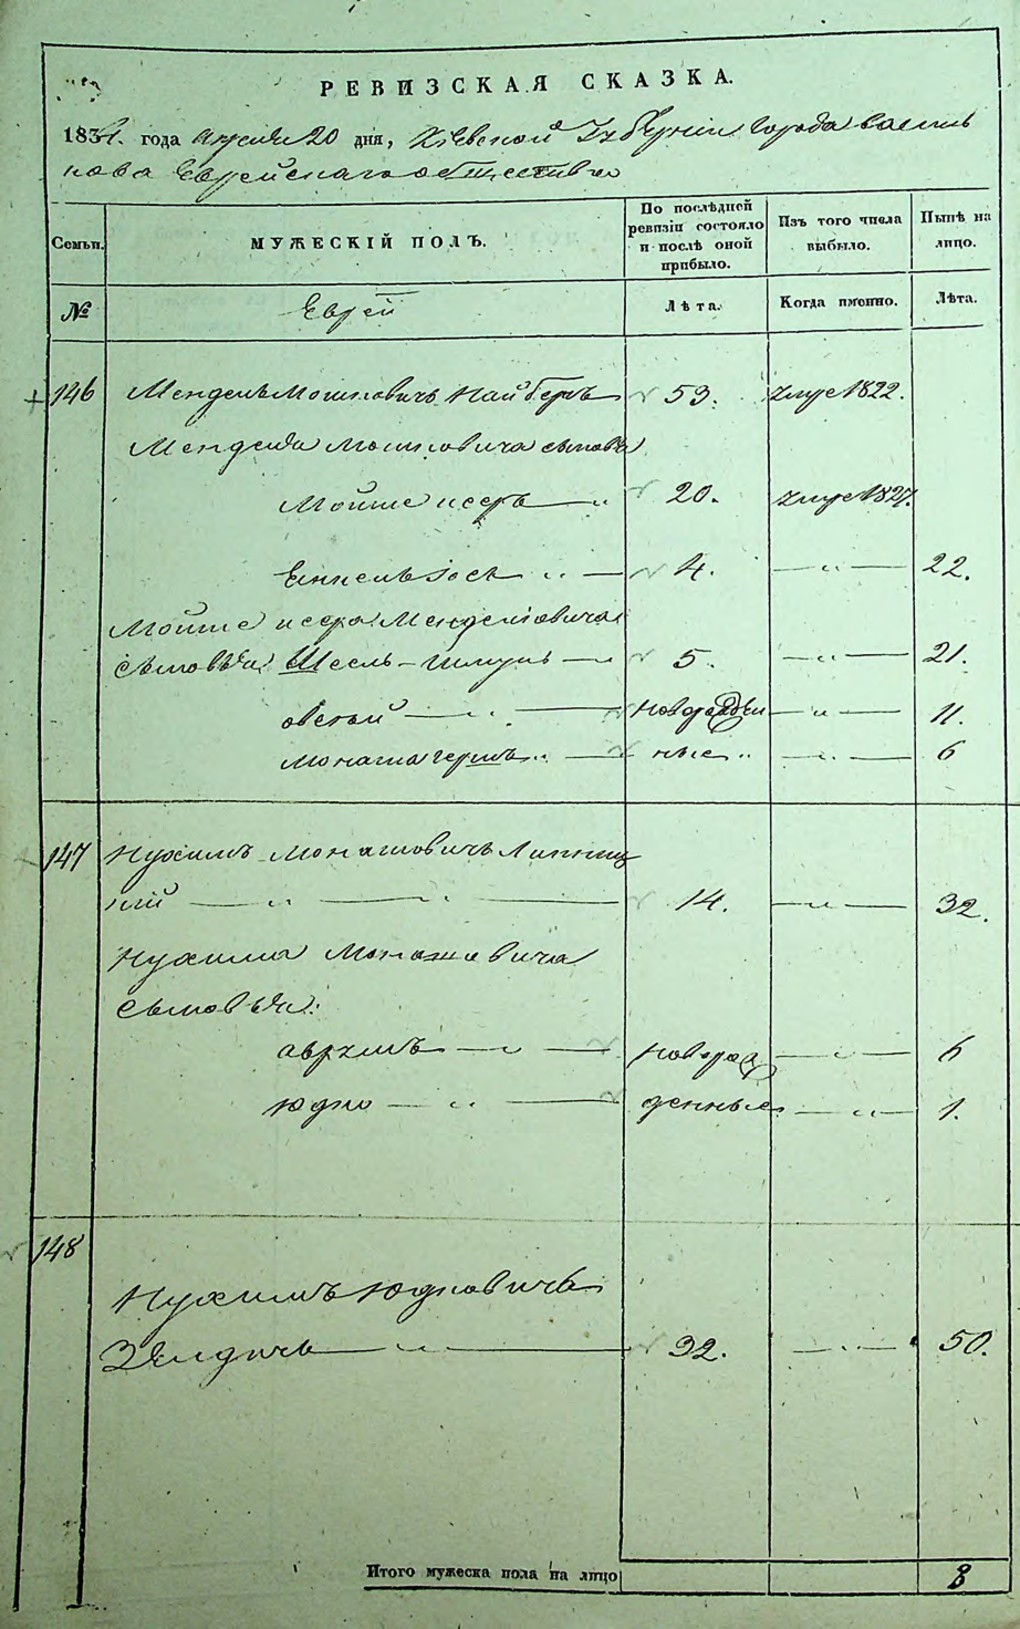 РЕВИЗСКАЯ СКАЗКА.
1834. года Апреля 20 дня, Кіевской Губерніи Города Василь
кова Еврейскаго общества
Семьи.
МУЖЕСКІЙ ПОЛЪ.
По послѣдней ревизіи состояло и послѣ оной прибыло.
Изъ того числа выбыло.
Нынѣ на лицо.
№
Еврей
Лѣта.
Когда имянно.
Лѣта.
146 Мендель Мошковичъ 53. 1822.
Менделя Мошковича сыновья
Мойше исеръ " 20. 1827.
" 4. " 22.
Мойше исера Менделіовича
сыновья " 5. " 21.
" новорожден " 11.
Монашгершъ " ные " " 6
147 Нухимъ Монашовичъ Липниц
кій " " 14. " 32.
Нухима Монашовича
сыновья:
аврумъ " новорож " 6
Юдко " денные " 1.
148
Нухимъ Юдковичъ
Зейдичъ " 32. " 50.
Итого мужеска пола на лицо 8